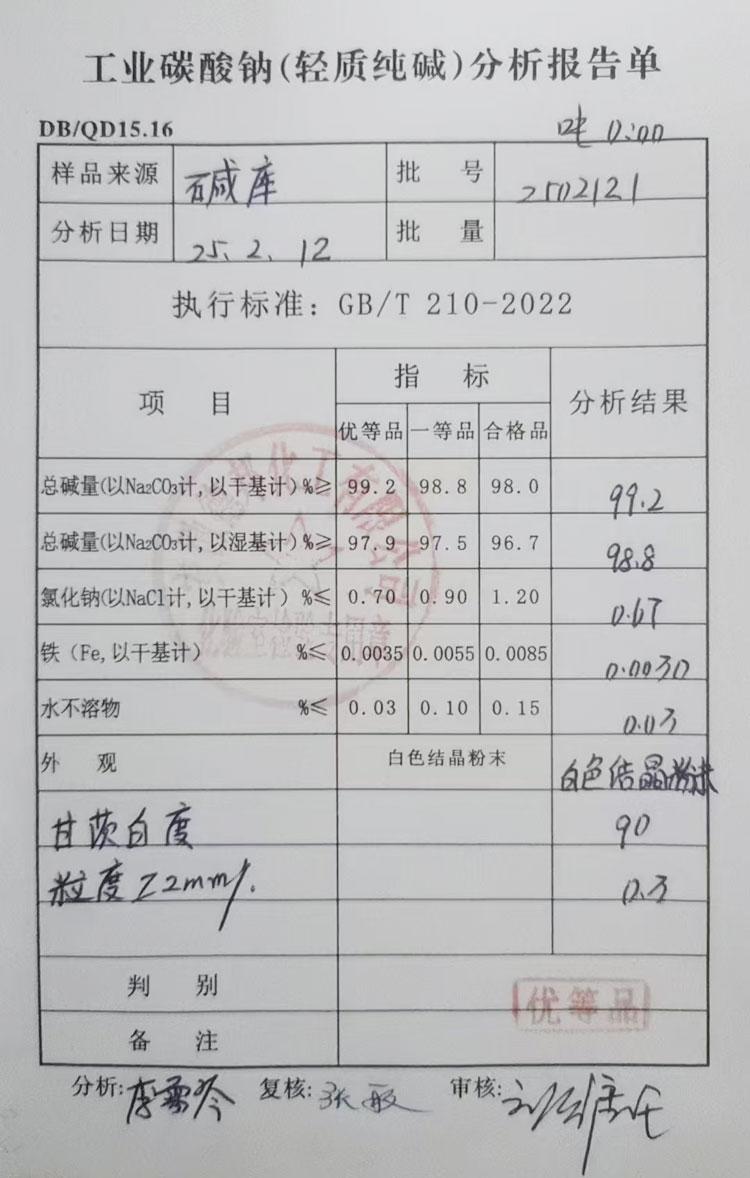 工业碳酸钠(轻质纯碱)分析报告单
DB/QD15.16
吨 0:00
样品来源 碱库 批 号 2502121
分析日期 25.2.12 批 量
执行标准: GB/T 210-2022
项 目 指 标 分析结果
优等品 一等品 合格品
总碱量(以Na₂CO₃计,以干基计)%≥ 99.2 98.8 98.0 99.2
总碱量(以Na₂CO₃计,以湿基计)%≥ 97.9 97.5 96.7 98.8
氯化钠(以NaCl计,以干基计) %≤ 0.70 0.90 1.20 0.67
铁(Fe,以干基计) %≤ 0.0035 0.0055 0.0085 0.0030
水不溶物 %≤ 0.03 0.10 0.15 0.03
外 观 白色结晶粉末 白色结晶粉末
甘茨白度 90
粒度 2mm 0.3
判 别 优等品
备 注
分析: 复核: 张敏 审核: